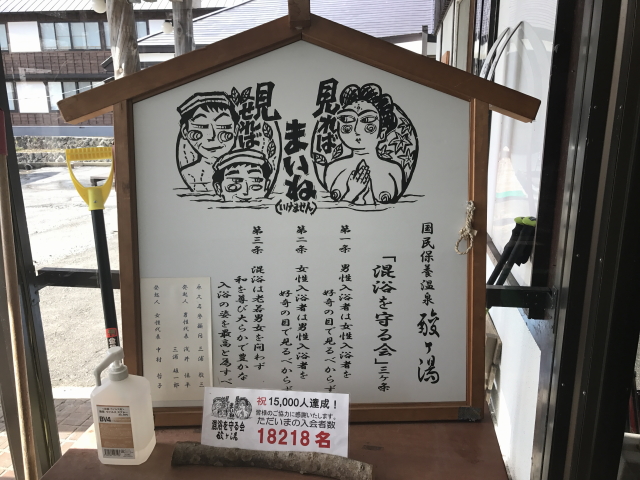 見れば
まいね
(いけません)
見せば
国民保養温泉
酸ヶ湯
「混浴を守る会」三ヶ条
第一条 男性入浴者は女性入浴者を
好奇の目で見るべからず
第二条 女性入浴者は男性入浴者を
好奇の目で見るべからず
第三条 混浴は老若男女を問わず
和を尊び大らかで豊かな
入浴の姿を最高と為すべし
発起人
祝 15,000人達成!
皆様のご協力に感謝いたします。
ただいまの入会者数
18218名
混浴を守る会
酸ヶ湯